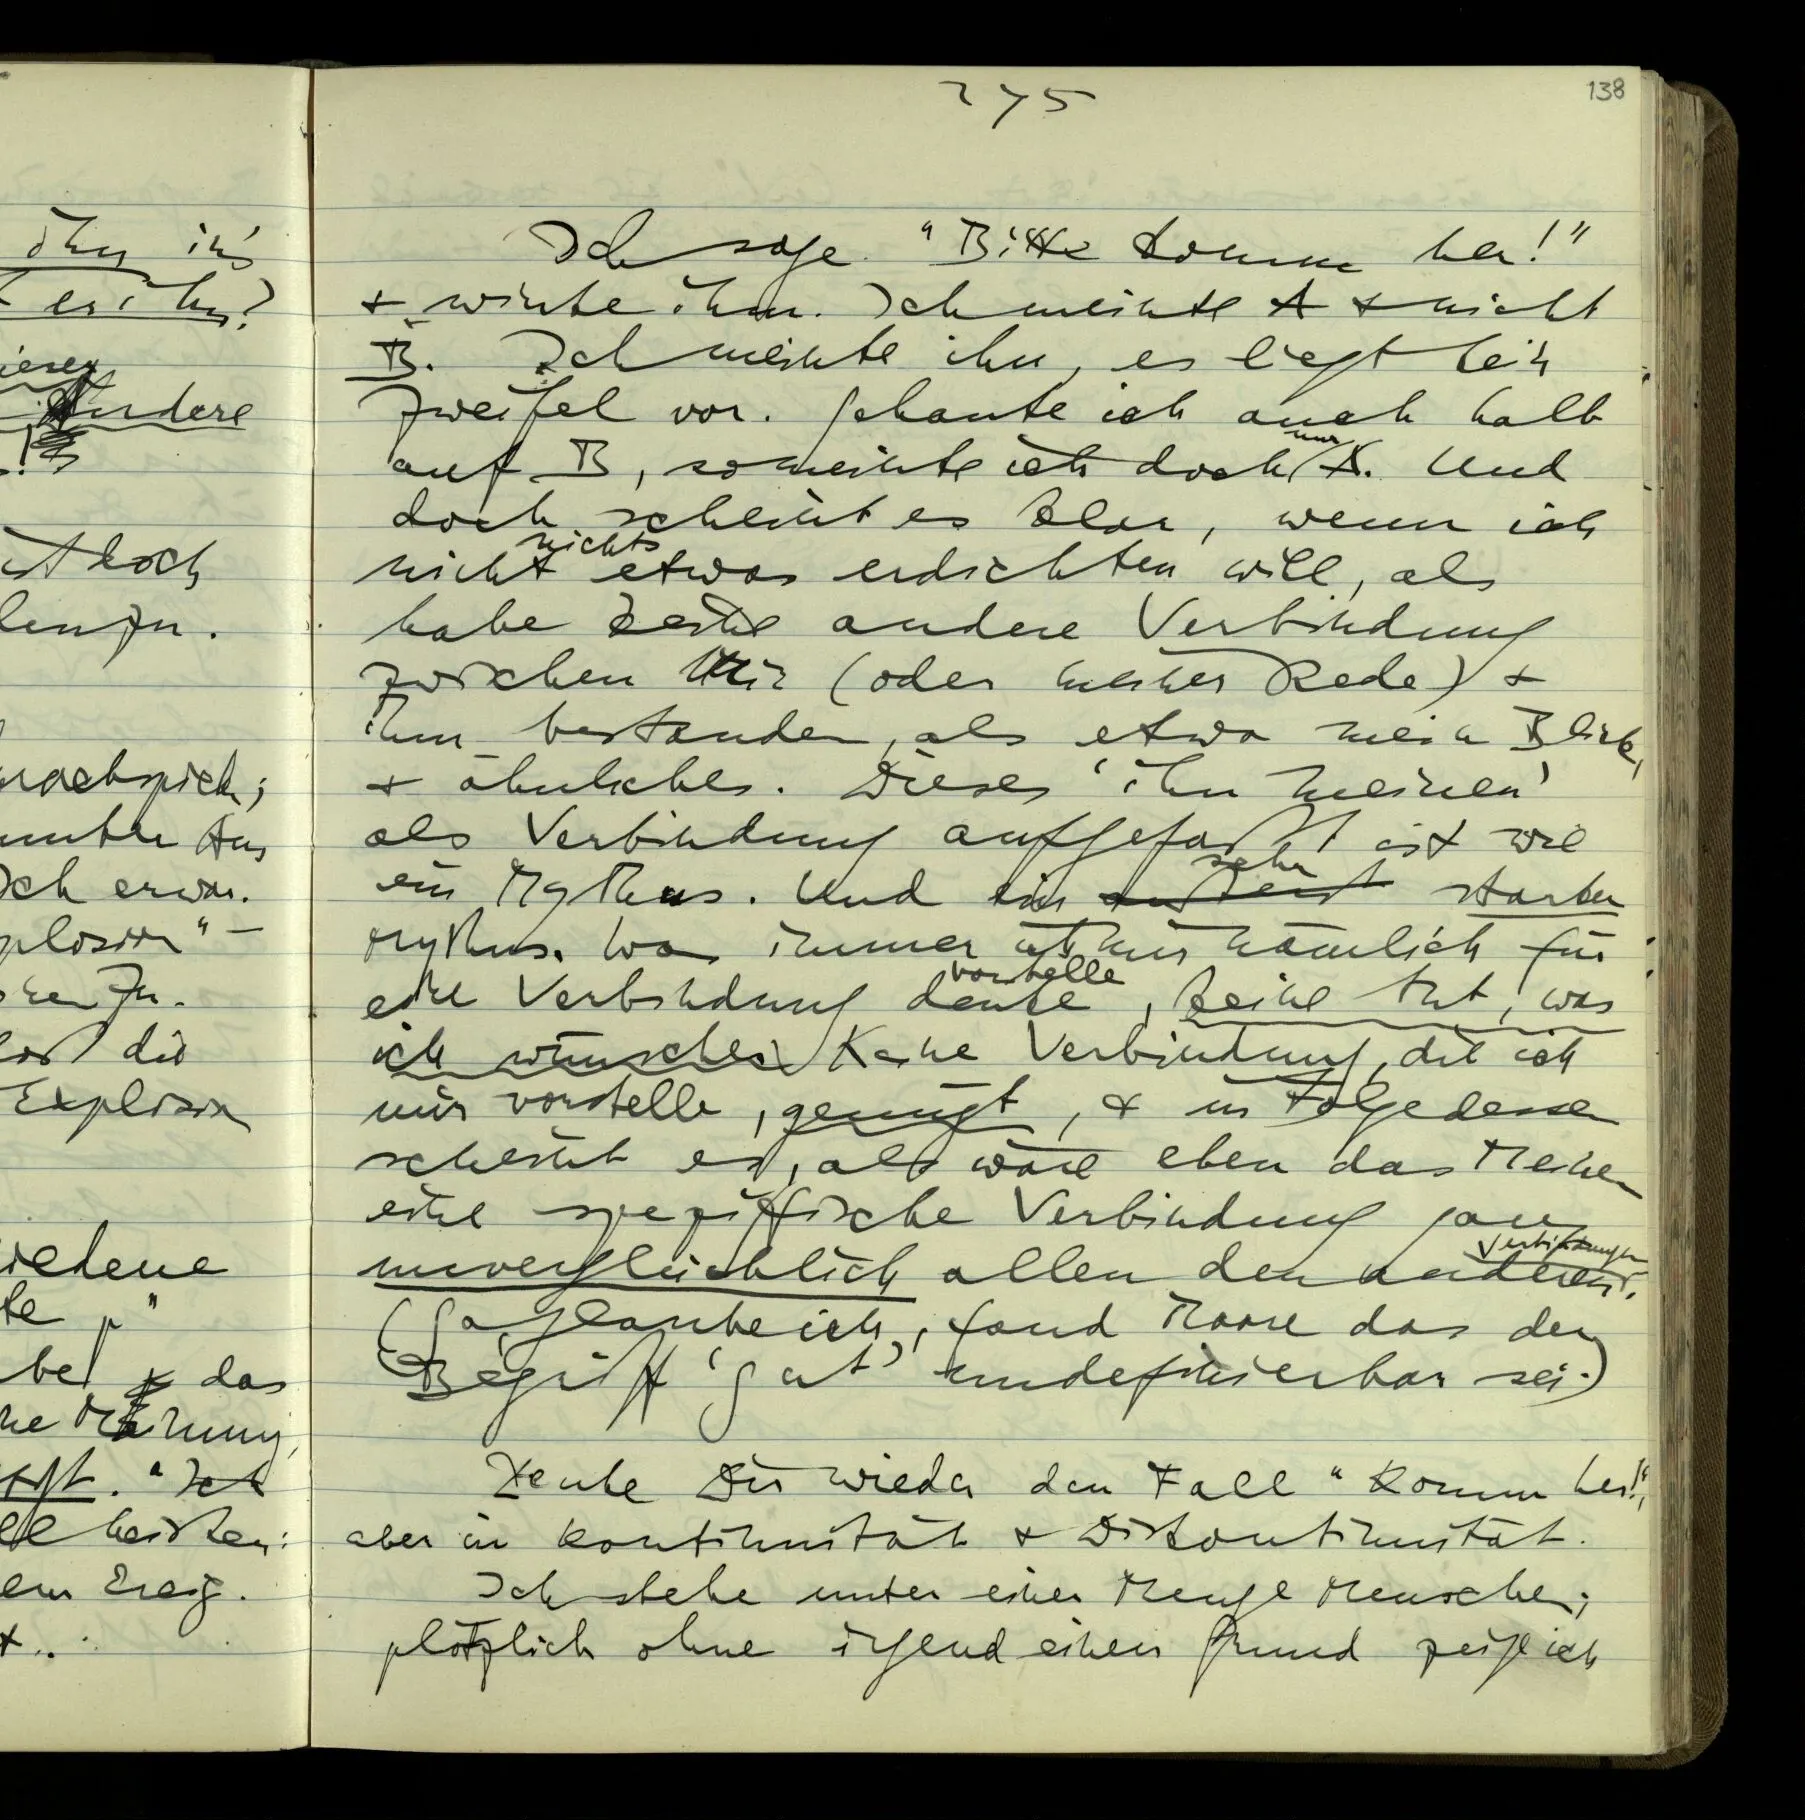 275
138
ihn in's
t er ihn?
Andere
doch
len zu.
prachspiel;
Ich erwar.
plosion" –
die
Explosion
iedene
te p"
be das
ne Meinung,
. "Ich
heißen:
em Ereig.
Ich sage "Bitte komm her!"
& winke ihm. Ich meinte A & nicht
B. Ich meinte ihn, es liegt kein
Zweifel vor. Schaute ich auch halb
auf B, so meinte ich doch nur A. Und
doch scheint es klar, wenn ich
nichts
nicht etwas erdichten will, als
habe keine andere Verbindung
zwischen mir (oder meiner Rede) &
ihm bestanden, als etwa mein Blick,
& ähnliches. Dieses 'ihn meinen'
als Verbindung aufgefaßt ist wie
sehr
ein Mythus. Und ein äußerst starker
Mythus. Was immer ich mir nämlich für
vorstelle
eine Verbindung denke, keine tut, was
ich wünsche. Keine Verbindung, die ich
mir vorstelle, genügt, & in Folgedessen
scheint es, als wäre eben das Meinen
eine spezifische Verbindung ganz
Verbindungen
unvergleichlich allen den anderen.
(So, glaube ich, fand Moore das der
Begriff 'gut' undefinierbar sei.)
Denke Dir wieder den Fall "Komm her!",
aber in Kontinuität & Diskontinuität.
Ich stehe unter einer Menge Menschen;
plötzlich ohne irgend einen Grund zeige ich